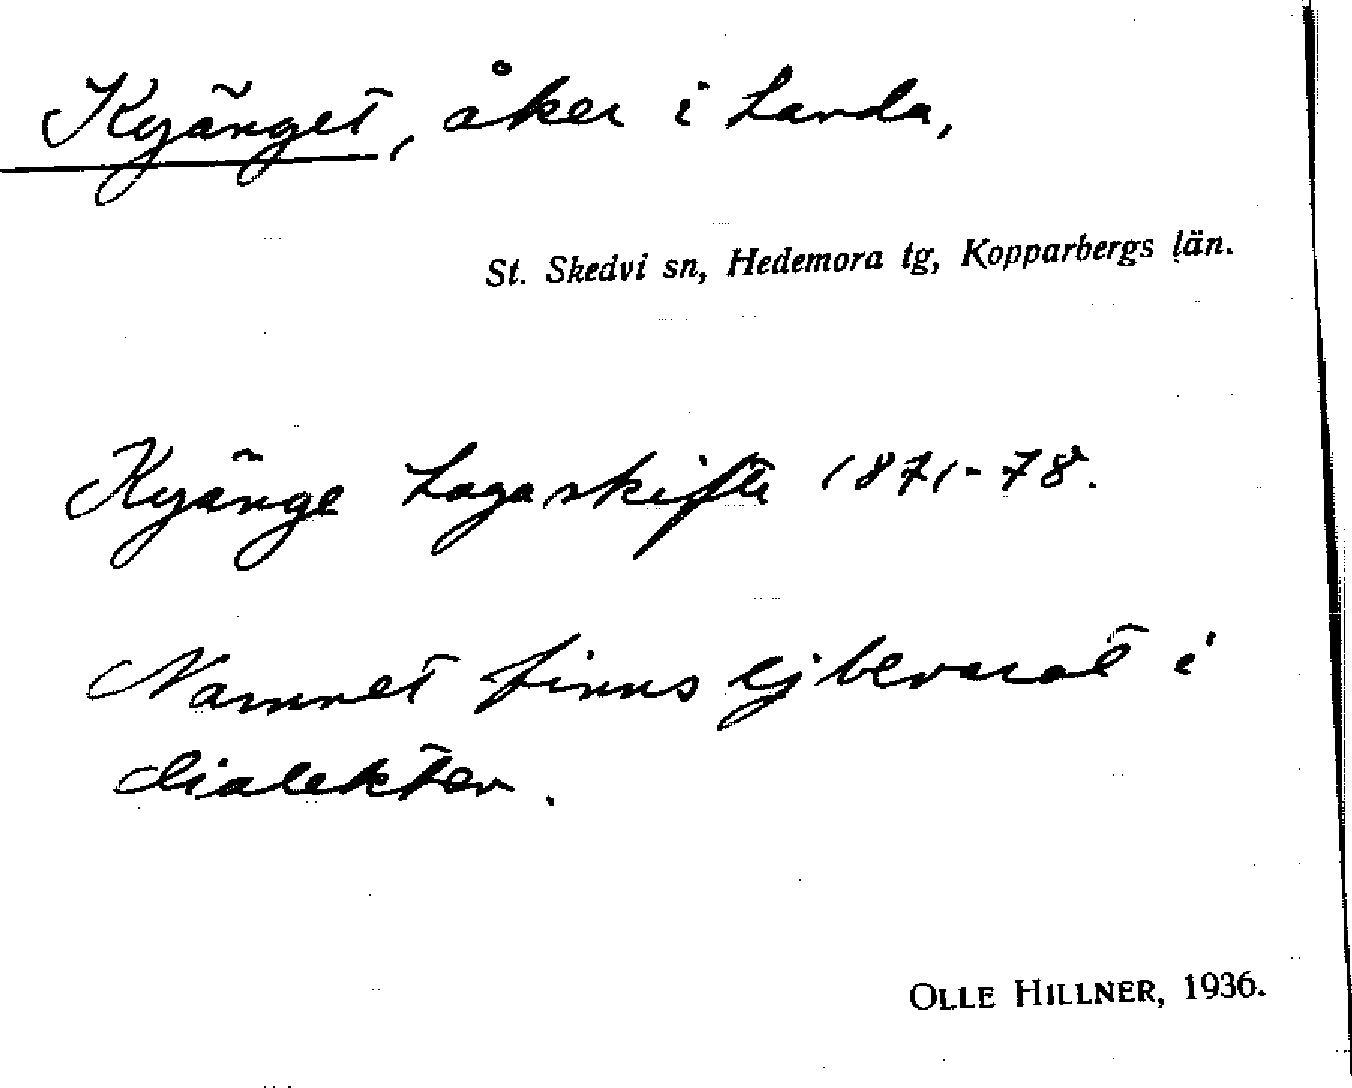 Kyänget, åker i Landa,
St. Skedvi sn, Hedemora tg, Kopparbergs län.
Kyänge Laga skifte 1871-78.
Namnet finns ej bevarat i
dialekten.
OLLE HILLNER, 1936.